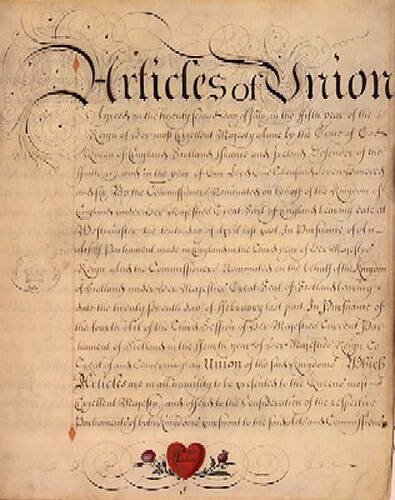 Articles of Union
Agreed on the twenty Second day of July in the fifth year of the
Reign of Her most Excellent Majesty Anne by the Grace of God
Queen of England Scotland France and Ireland Defender of the
Faith &c and in the year of Our Lord One thousand Seven hundred
and six By the Commissioners Nominated on behalf of the Kingdom of
England under Her Majesties Great Seal of England bearing date at
Westminster the tenth day of April last past In Pursuance of an
Act of Parliament made in England in the third year of Her Majesties
Reign and the Commissioners Nominated on the behalf of the Kingdom
of Scotland under Her Majesties Great Seal of Scotland bearing
date the twenty seventh day of February last past In Pursuance of
the fourth Act of the third Session of Her Majesties Current Par
liament of Scotland in the fourth year of Her Majesties Reign to
Treat of and Concerning an Union of the said Kingdoms Which
Articles are in all humility to be presented to the Queens most
Excellent Majesty and offered to the Consideration of the respective
Parliaments of both Kingdoms pursuant to the said Acts and Commissions